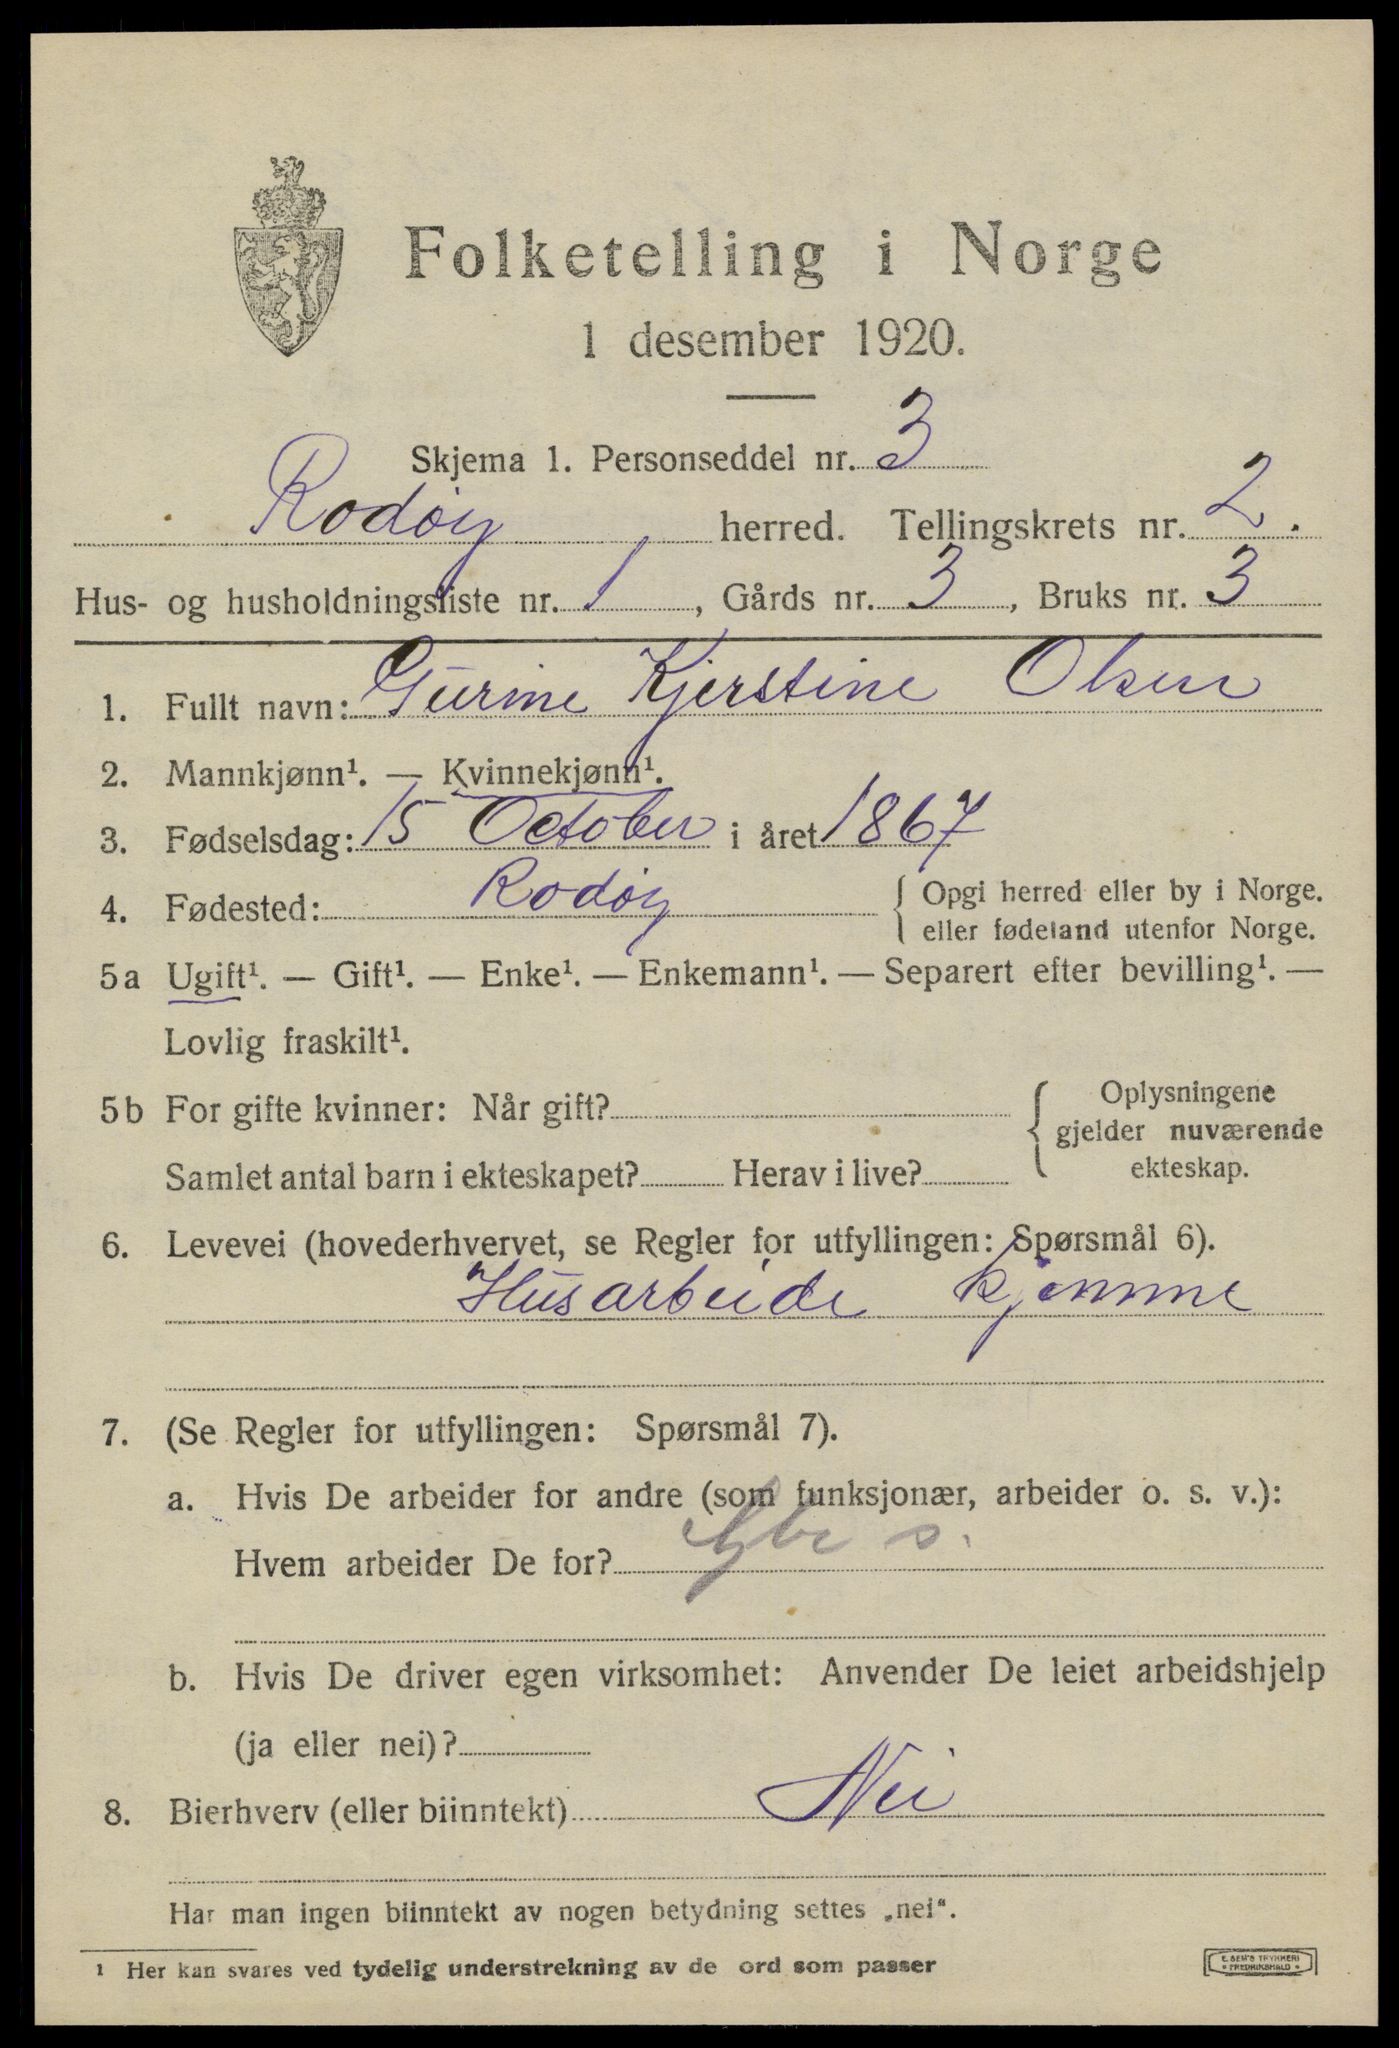 Folketelling i Norge
1 desember 1920.
Skjema 1. Personseddel nr. 3
Rodöy herred. Tellingskrets nr. 2.
Hus- og husholdningsliste nr. 1, Gårds nr. 3, Bruks nr. 3
1. Fullt navn: Gurine Kjerstine Olsen
2. Mannkjønn¹. — Kvinnekjønn¹.
3. Fødselsdag: 15 October i året 1867
4. Fødested: Rodöy { Opgi herred eller by i Norge.
eller fødeland utenfor Norge.
5a Ugift¹. — Gift¹. — Enke¹. — Enkemann¹. — Separert efter bevilling¹. —
Lovlig fraskilt¹.
5b For gifte kvinner: Når gift? { Oplysningene
gjelder nuværende
Samlet antal barn i ekteskapet? Herav i live? ekteskap.
6. Levevei (hovederhvervet, se Regler for utfyllingen: Spørsmål 6).
Husarbeide hjemme
7. (Se Regler for utfyllingen: Spørsmål 7).
a. Hvis De arbeider for andre (som funksjonær, arbeider o. s. v.):
Hvem arbeider De for?
b. Hvis De driver egen virksomhet: Anvender De leiet arbeidshjelp
(ja eller nei)?
8. Bierhverv (eller biinntekt) Nei
Har man ingen biinntekt av nogen betydning settes „nei“.
1 Her kan svares ved tydelig understrekning av de ord som passer
E. SEM'S TRYKKERI
FREDRIKSHALD